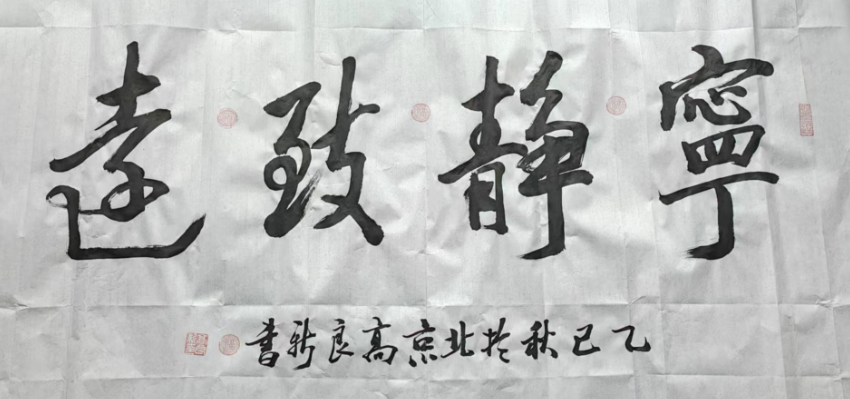 寧靜致遠
乙巳秋於北京高良新書